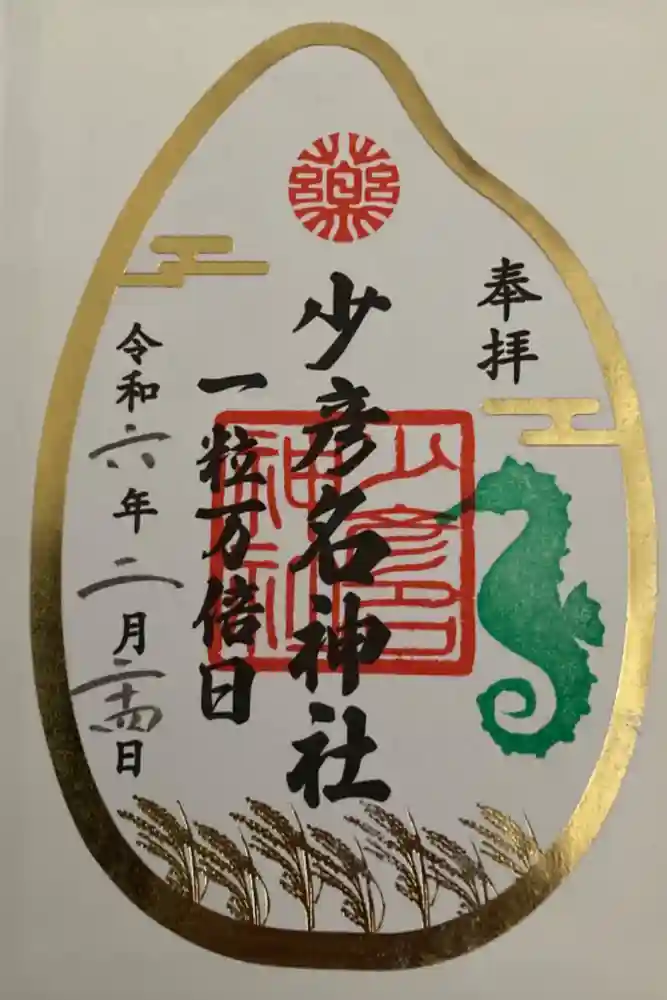 奉拝
薬
少彦名神社
少彦名
神社
一粒万倍日
令和六年二月二十四日